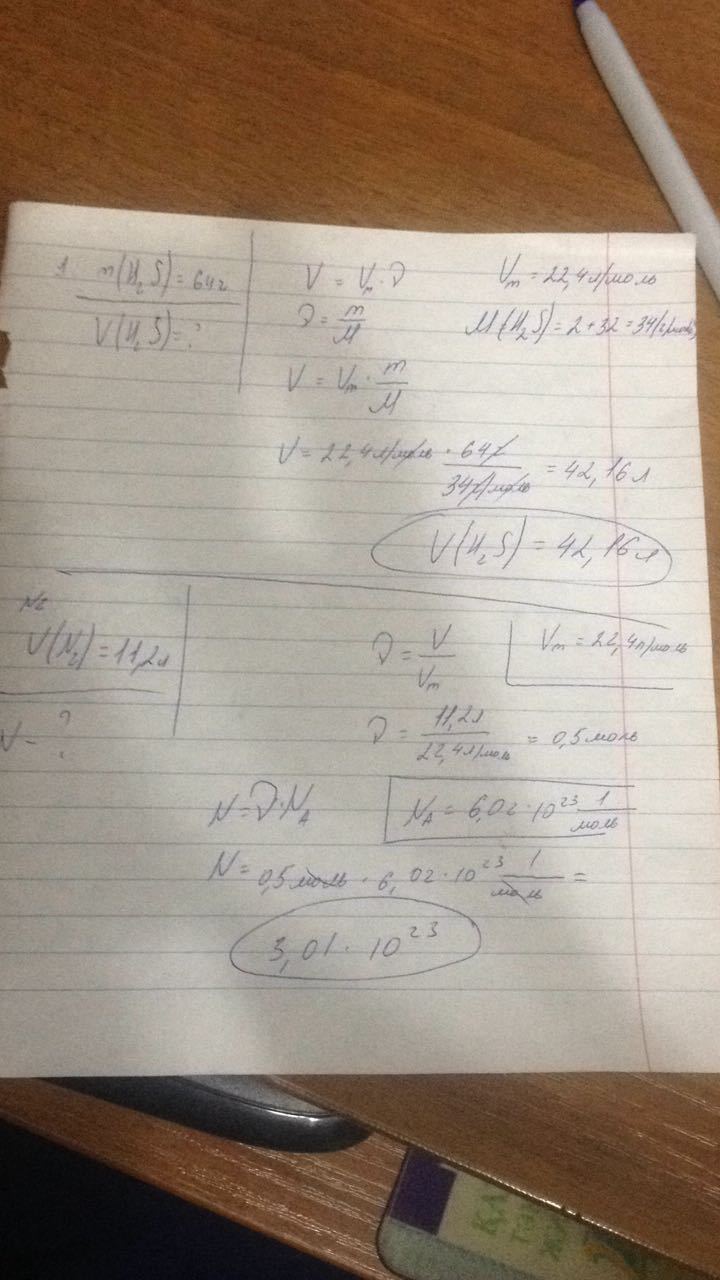 1 m(H₂S) = 64г
V(H₂S) = ?
V = Vm · ν
Vm = 22,4 л/моль
ν = m/M
M(H₂S) = 2 + 32 = 34(г/моль)
V = Vm · m/M
V = 22,4 л/моль · 64г / 34г/моль = 42,16 л
V(H₂S) = 42,16 л
№2
V(N₂) = 11,2л
N - ?
ν = V/Vm
Vm = 22,4 л/моль
ν = 11,2л / 22,4 л/моль = 0,5 моль
N = ν · NA
NA = 6,02 · 10²³ 1/моль
N = 0,5 моль · 6,02 · 10²³ 1/моль =
3,01 · 10²³